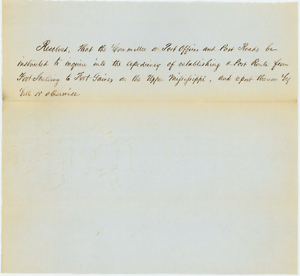 Resolved, That the Committee on Post Offices and Post Roads be
instructed to inquire into the expediency of establishing a Post Route from
Fort Snelling to Fort Gaines on the Upper Mississippi, and report thereon by
Bill or otherwise